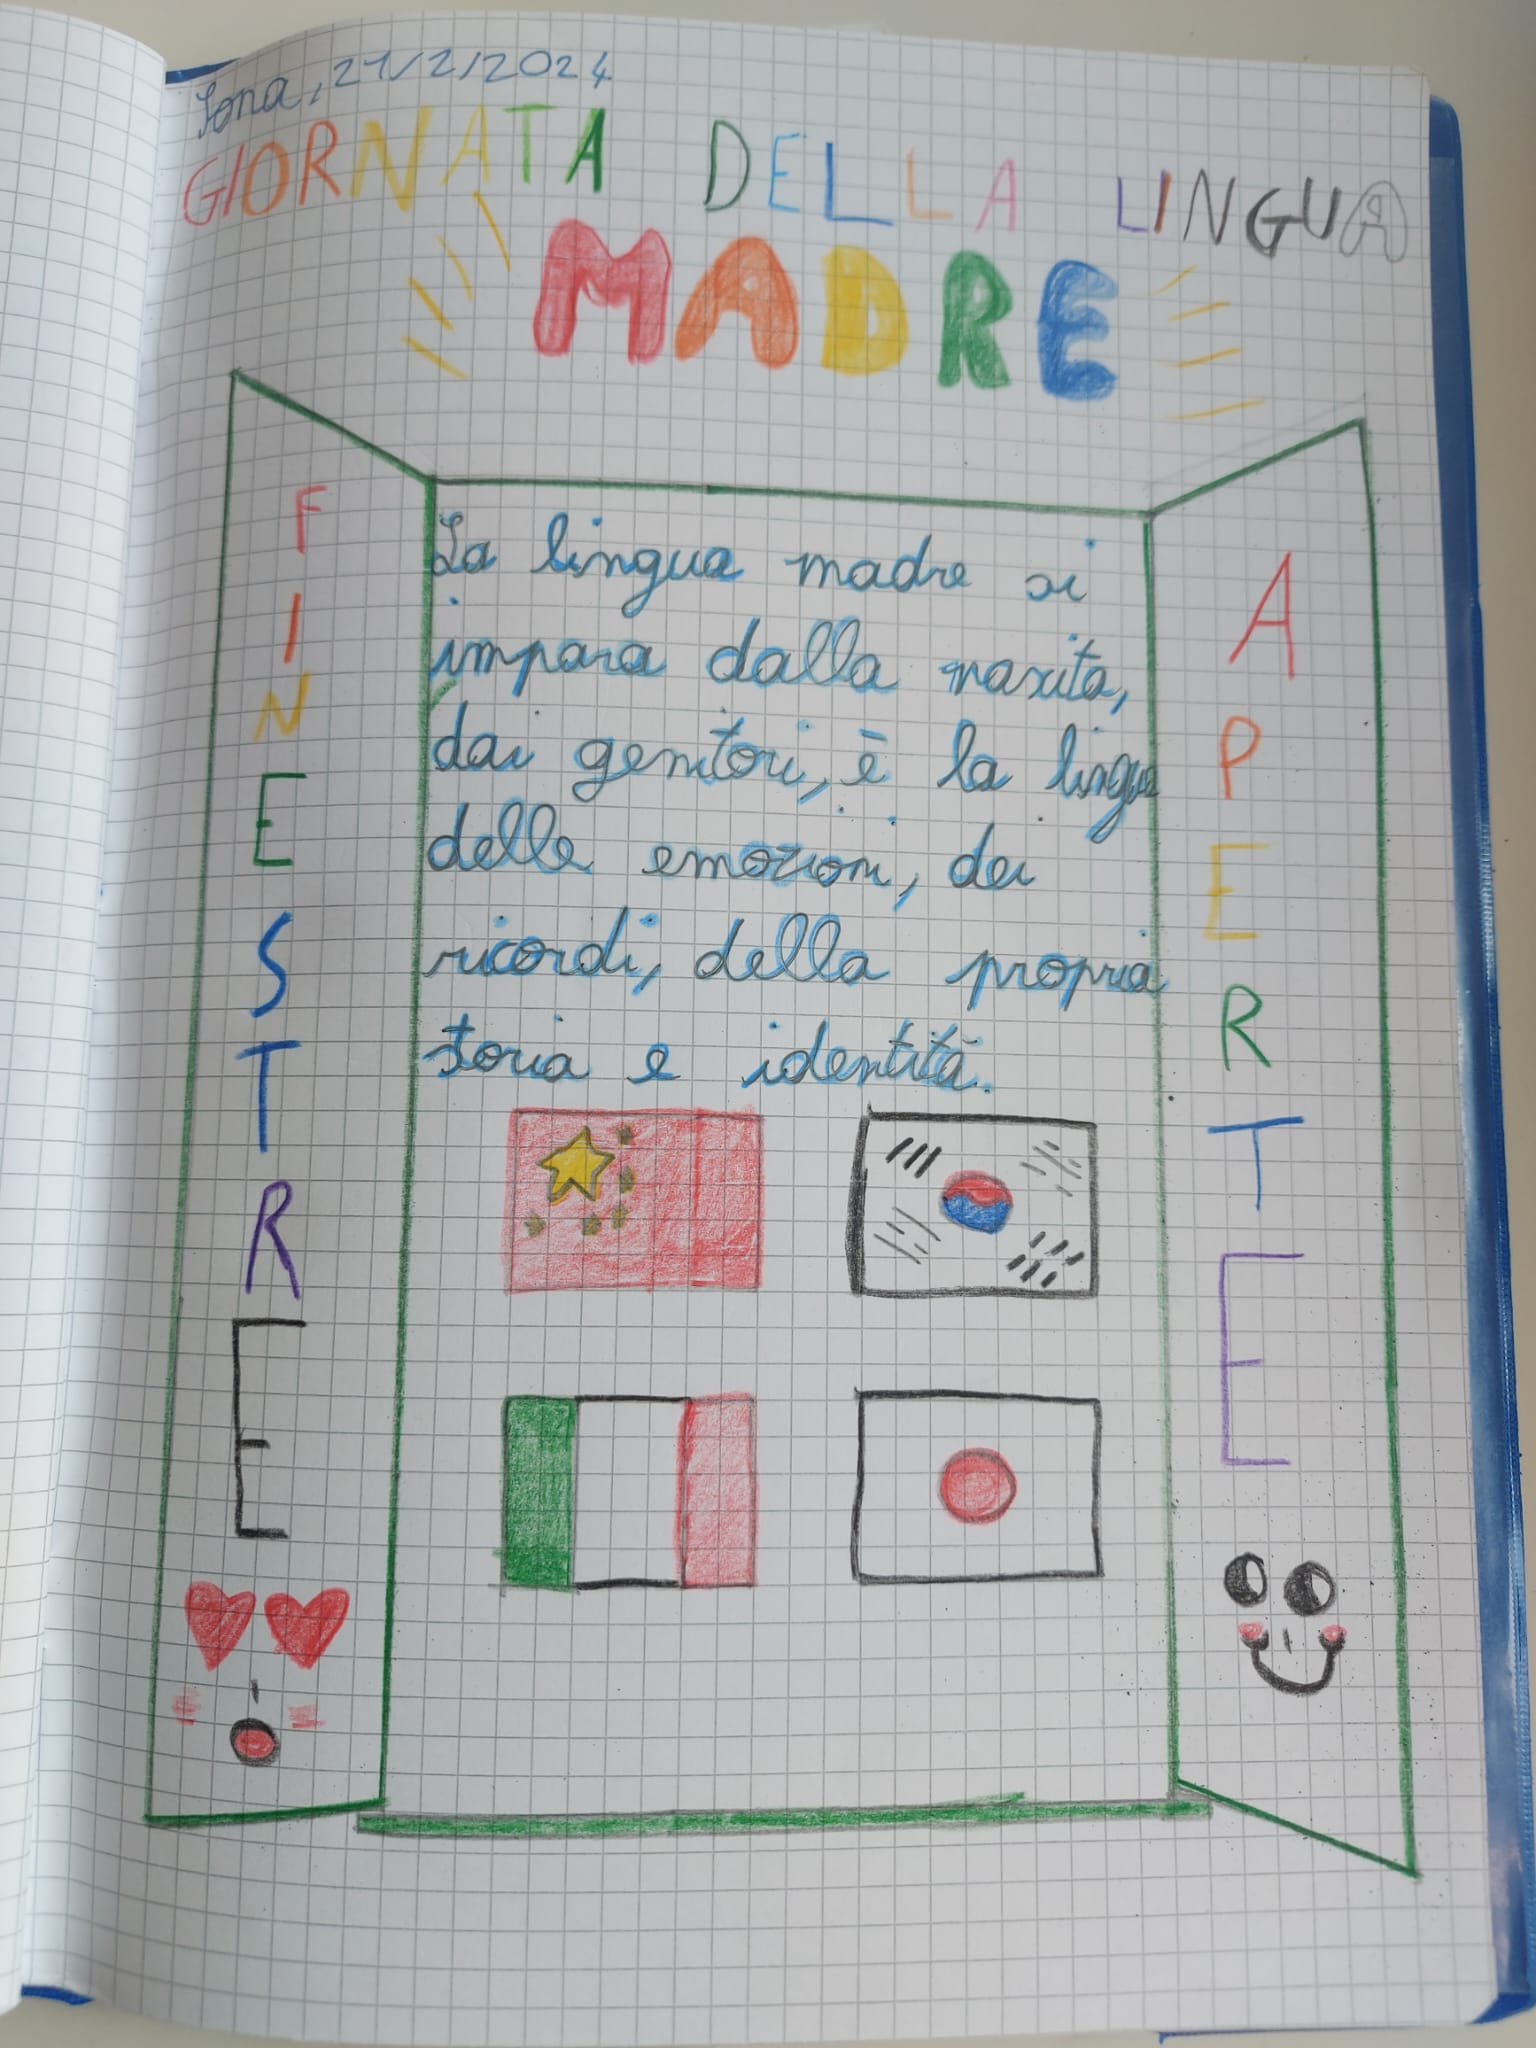 Sona, 21/2/2024
GIORNATA DELLA LINGUA
MADRE
FINESTRE
La lingua madre si
impara dalla nascita,
dai genitori, è la lingua
delle emozioni, dei
ricordi, della propria
storia e identità.
APERTE